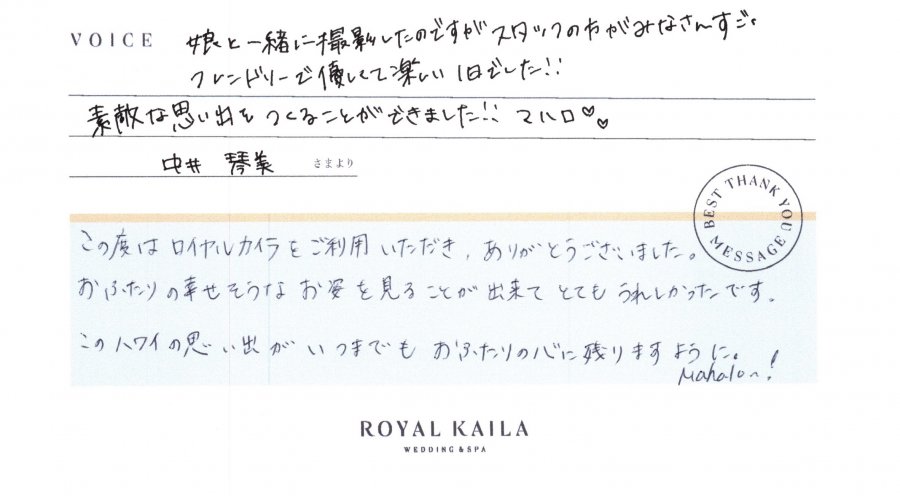 VOICE
娘と一緒に撮影したのですがスタッフの方がみなさんすご
フレンドリーで優しくて楽しい1日でした!!
素敵な思い出をつくることができました!! マハロ♡♡
中井 琴美 さまより
BEST THANK YOU MESSAGE
この度はロイヤルカイラをご利用いただき、ありがとうございました。
おふたりの幸せそうなお姿を見ることが出来てとてもうれしかったです。
このハワイの思い出がいつまでもおふたりの心に残りますように。
Mahalo~!
ROYAL KAILA
WEDDING & SPA